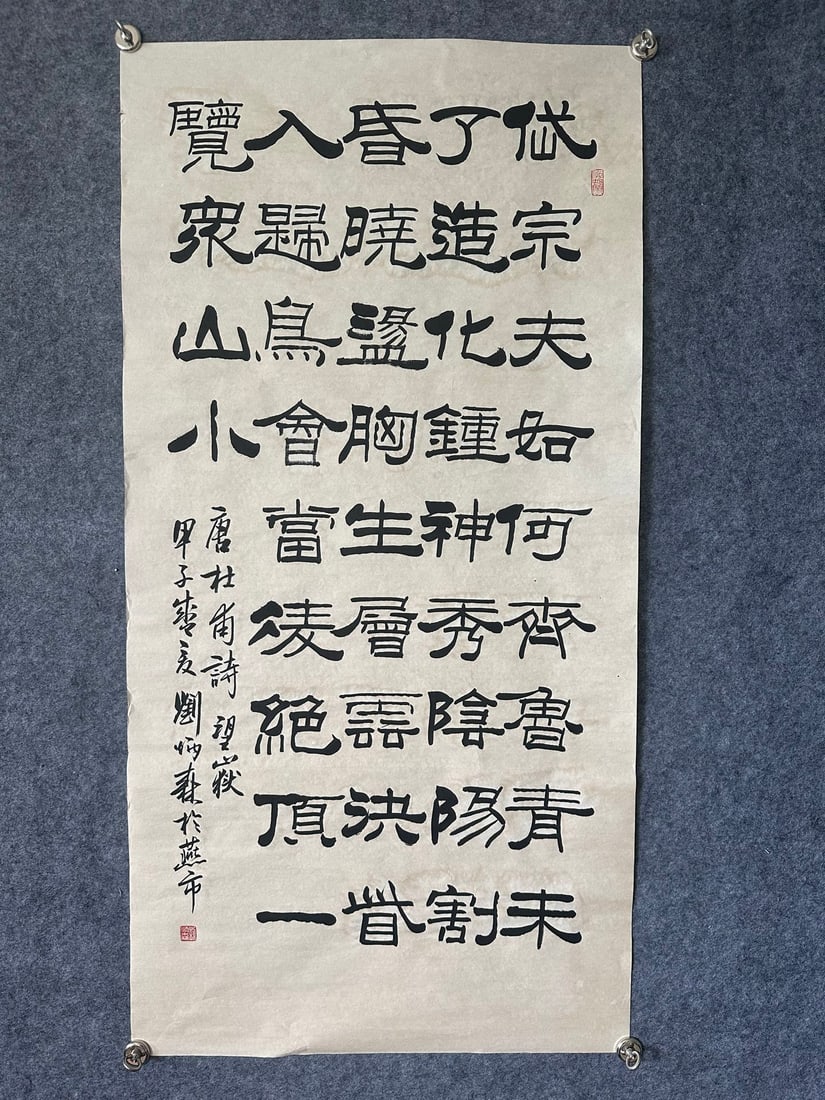 岱宗夫如何齊魯青未
了造化鍾神秀陰陽割
昏曉盪胸生層雲決眥
入歸鳥會當凌絕頂一
覽眾山小
唐杜甫詩望嶽
甲子夏劉炳森於燕市